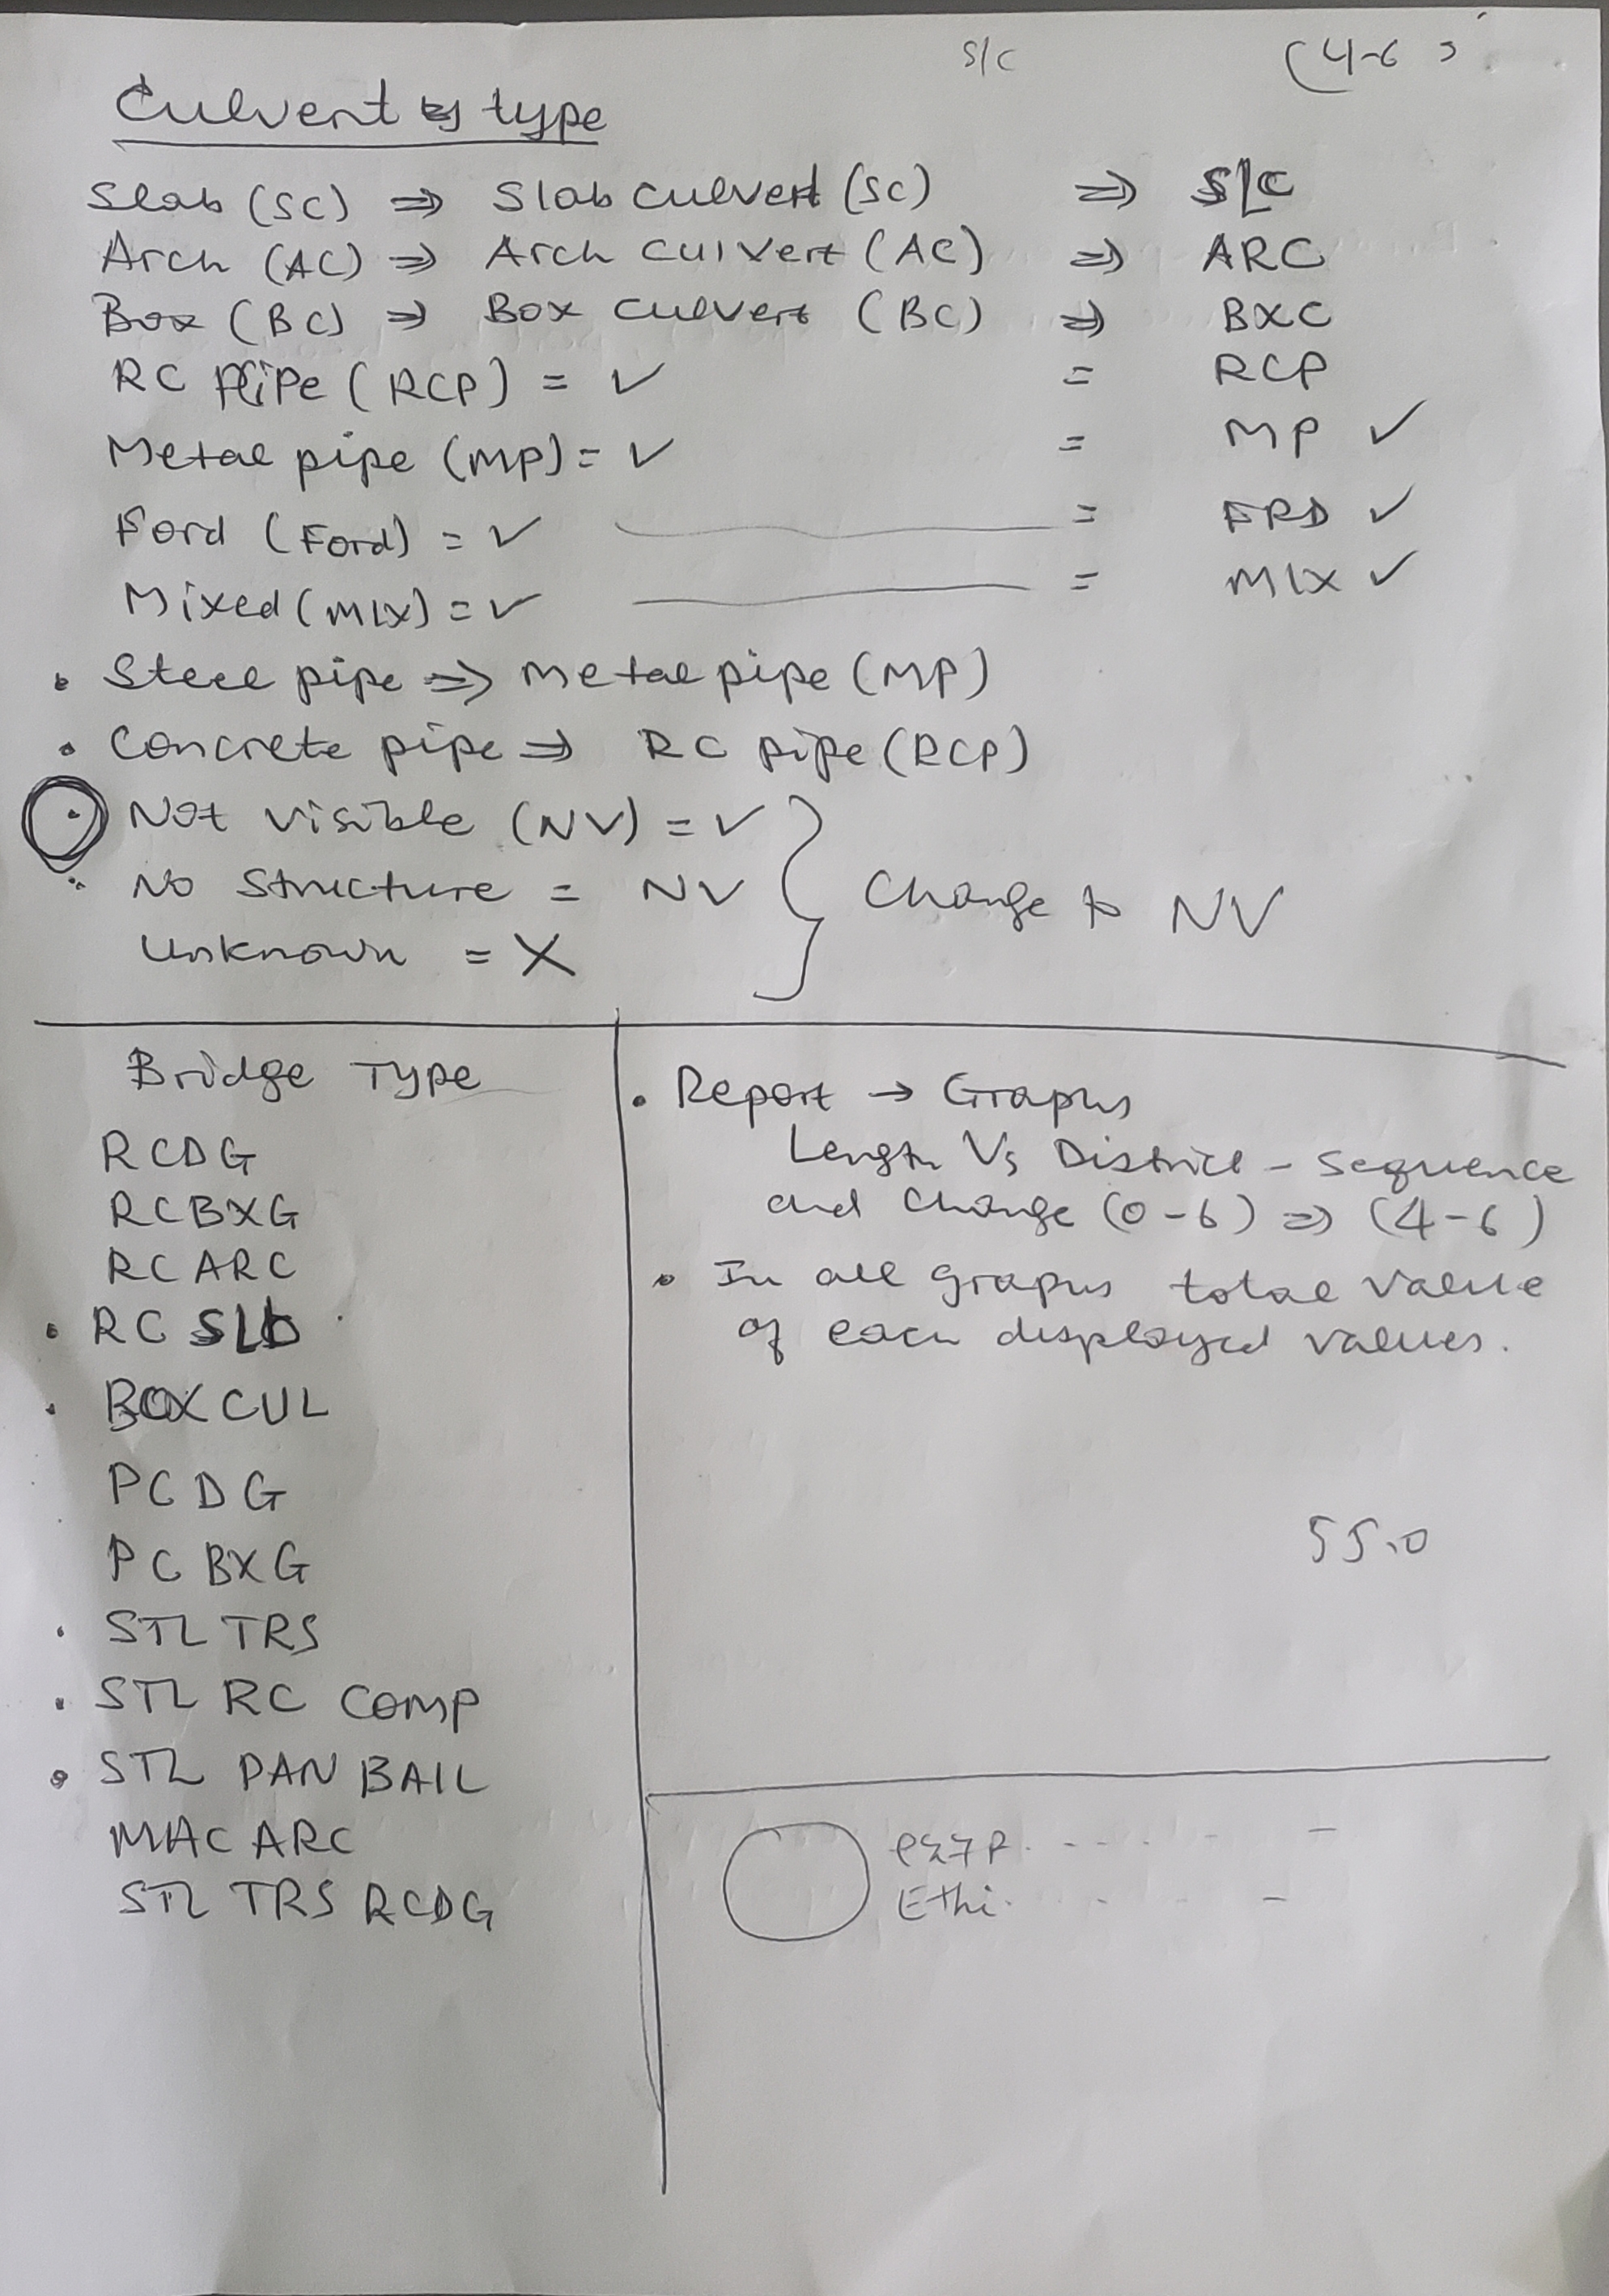 S/C (4-6)
Culvert by type
Slab (SC) ⇒ Slab culvert (SC) ⇒ SLC
Arch (AC) ⇒ Arch Culvert (AC) ⇒ ARC
Box (BC) ⇒ Box culvert (BC) ⇒ BXC
RC Pipe (RCP) = ✓ = RCP
Metal pipe (MP) = ✓ = MP ✓
Ford (Ford) = ✓ = FRD ✓
Mixed (MIX) = ✓ = MIX ✓
• Steel pipe ⇒ Metal pipe (MP)
• Concrete pipe ⇒ RC pipe (RCP)
• Not visible (NV) = ✓
No Structure = NV
Unknown = X
} Change to NV
Bridge Type
RCDG
RCBXG
RC ARC
• RC Slb
• BOX CUL
PC DG
PC BXG
• STL TRS
• STL RC COMP
• STL PAN BAIL
MAC ARC
STL TRS RCDG
• Report → Graphs
Length Vs District - sequence
and change (0-6) ⇒ (4-6)
• In all graphs total value
of each displayed values.
55.0
Ethi.